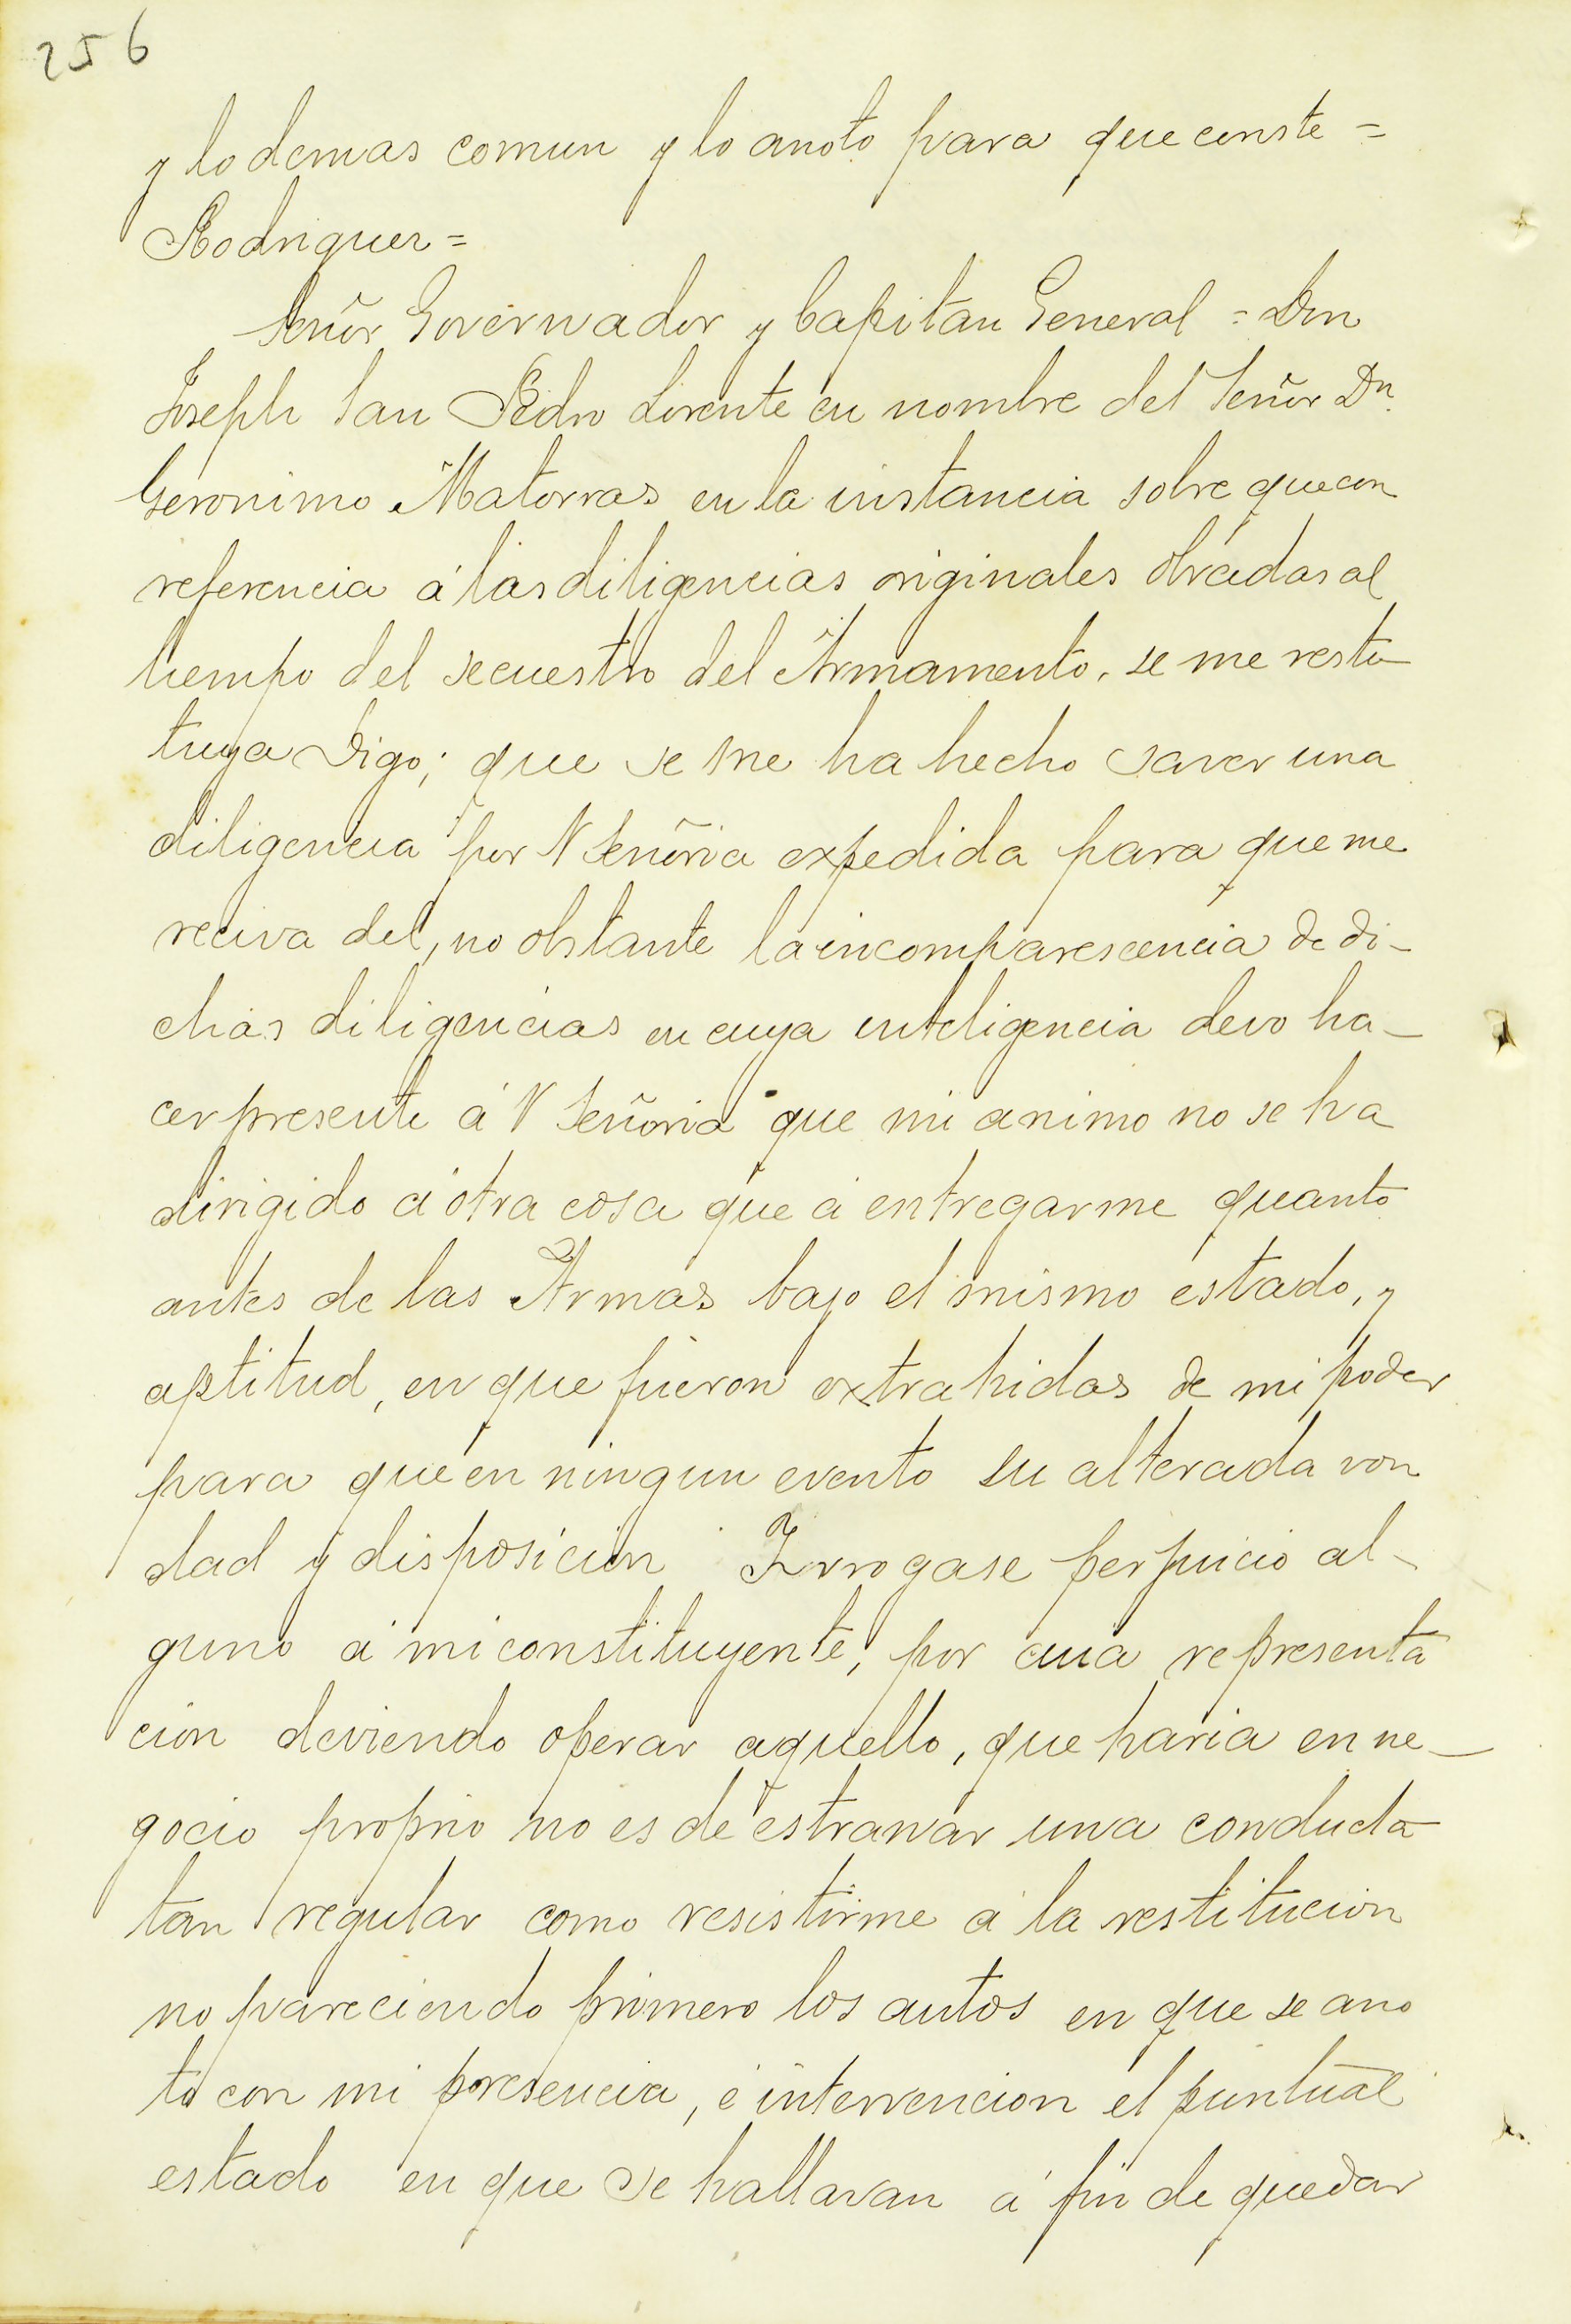 256
y lo demas comun y lo anoto para que conste =
Rodriguez =
Señor Governador y Capitan General = Don
Joseph San Pedro Lorente en nombre del Señor Dn.
Geronimo Matorras en la instancia sobre que con
referencia á las diligencias originales obradas al
tiempo del secuestro del Armamento, se me resti-
tuya Digo; que se me ha hecho saver una
diligencia por V Señoria expedida para que me
reciva del, no obstante la incomparescencia de di-
chas diligencias en cuya inteligencia devo ha-
cer presente á V Señoria que mi animo no se ha
dirigido á otra cosa que á entregarme quanto
antes de las Armas bajo el mismo estado, y
aptitud, en que fueron extrahidas de mi poder
para que en ningun evento su alterada von
dad y disposicion Irrogase perjuicio al-
guno á mi constituyente, por cuia representa
cion deviendo operar aquello, que haria en ne-
gocio proprio no es de estranar una conducta
tan regular como resistirme á la restitucion
no pareciendo primero los autos en que se ano
tó con mi presencia, é intervencion el puntual
estado en que se hallavan á fin de quedar